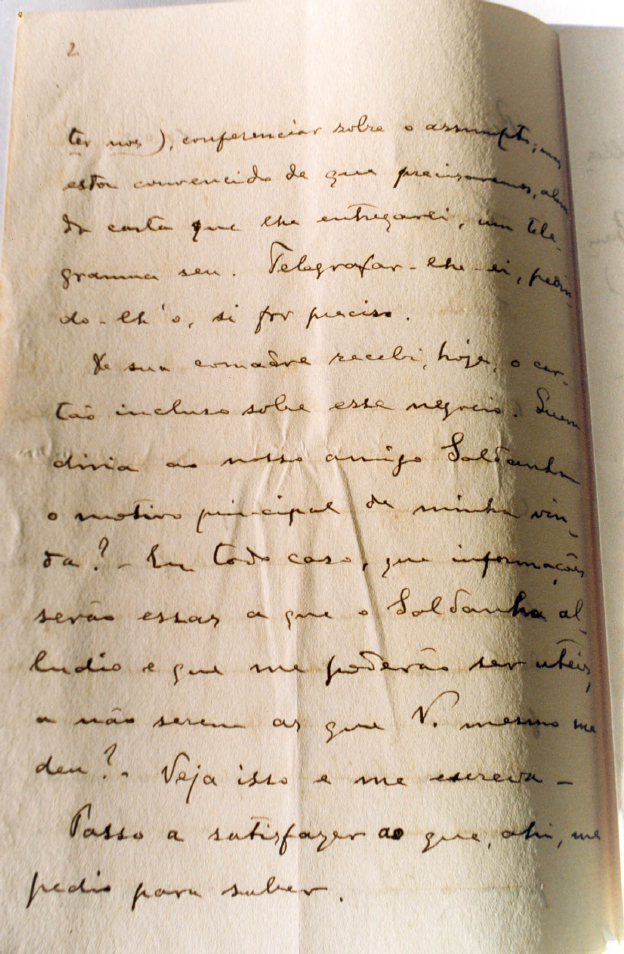 2
ter nos), conferenciar sobre o assumpto, mas
estou convencido de que precisaremos, alem
da carta que lhe entregarei, um tele-
gramma seu. Telegrafar-lhe-ei, pedin-
do-lh'o, si for preciso.
De sua comadre recebi, hoje, o car-
tão incluso sobre esse negocio. Quem
diria ao nosso amigo Saldanha
o motivo principal de minha vin-
da? - Em todo caso, que informações
serão essas a que o Saldanha al-
ludio e que me poderão ser uteis,
a não serem as que V. mesmo me
deu? - Veja isso e me escreva -
Passo a satisfazer ao que, ahi, me
pedio para saber.